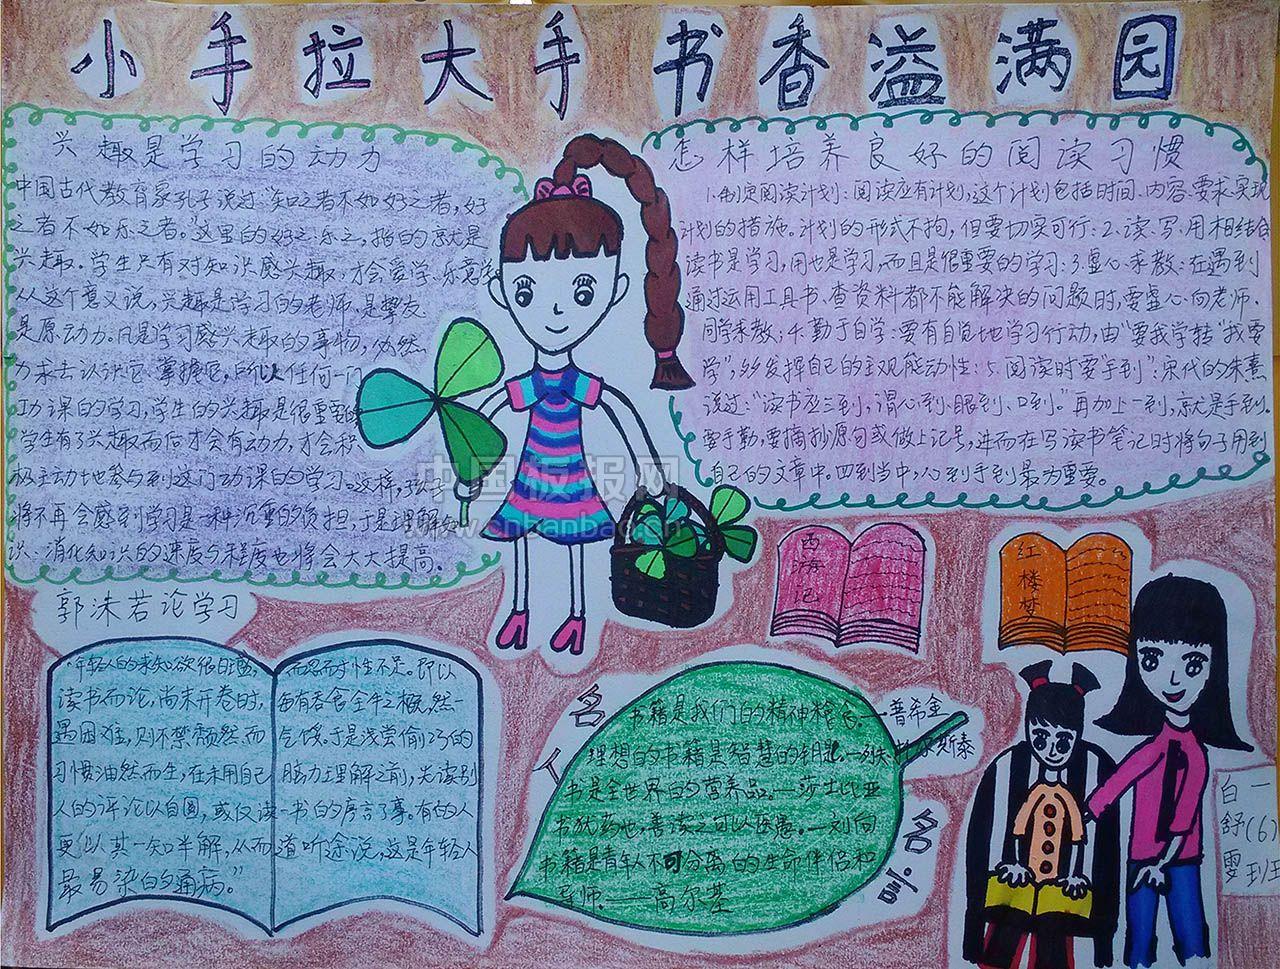 小手拉大手 书香溢满园
兴趣是学习的动力
中国古代教育家孔子说过:"知之者不如好之者,好
之者不如乐之者。"这里的好之、乐之,指的就是
兴趣。学生只有对知识感兴趣,才会爱学、乐意学
从这个意义说,兴趣是学习的老师,是挚友
是原动力。凡是学习感兴趣的事物,必然
力求去认识它、掌握它,所以任何一门
功课的学习,学生的兴趣是很重要的
学生有了兴趣而后才会有动力,才会积
极主动地参与到这门功课的学习。这样,孩子
将不再会感到学习是一种沉重的负担,于是理解知
识、消化知识的速度与程度也将会大大提高。
怎样培养良好的阅读习惯
1、制定阅读计划:阅读应有计划,这个计划包括时间、内容、要求、实现
计划的措施。计划的形式不拘,但要切实可行;2、读、写、用相结合
读书是学习,用也是学习,而且是很重要的学习;3、虚心求教:在遇到
通过运用工具书、查资料都不能解决的问题时,要虚心向老师、
同学求教;4、勤于自学:要有自觉地学习行动,由"要我学转"我要
学",多多发挥自己的主观能动性;5、阅读时要"手到":宋代的朱熹
说过:"读书应三到,谓心到、眼到、口到。"再加上一到,就是手到。
要手勤,要摘抄原句或做上记号,进而在写读书笔记时将句子用到
自己的文章中。四到当中,心到手到最为重要。
中国板报网
www.cnbanbao.cn
西海记
红楼梦
郭沫若论学习
"年轻人的求知欲很旺盛,
读书而论,尚未开卷时,
遇困难,则不禁颓然而
习惯油然而生,在未用自己
人的评论以自圆,或仅读
更以其一知半解,从而
最易染的通病。"
而忍耐性不足。即以
每有吞食全牛之概,然一
气馁。于是浅尝偷巧的
脑力理解之前,先读别
一书的序言了事。有的人
道听途说,这是年轻人
名人名言
书籍是我们的精神粮食。——普希金
理想的书籍是智慧的钥匙。——列夫·托尔斯泰
书是全世界的营养品。——莎士比亚
书犹药也,善读之可以医愚。——刘向
书籍是青年人不可分离的生命伴侣和
导师。——高尔基
一(6)班
白舒雯